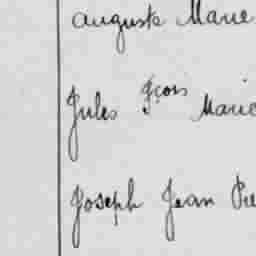 Auguste Marie
Jules Fçois Marie
Joseph Jean Pie